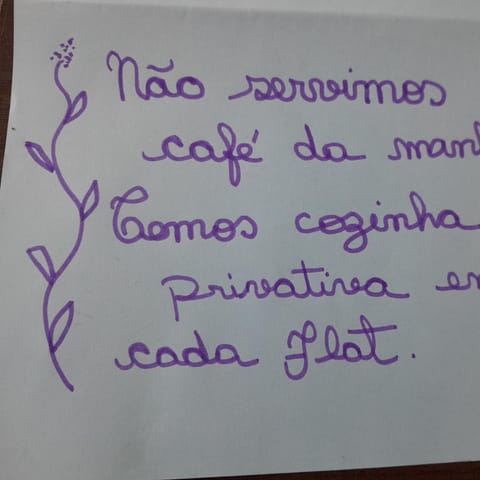 Não servimos
café da manh
Temos cozinha
privativa em
cada Flat.